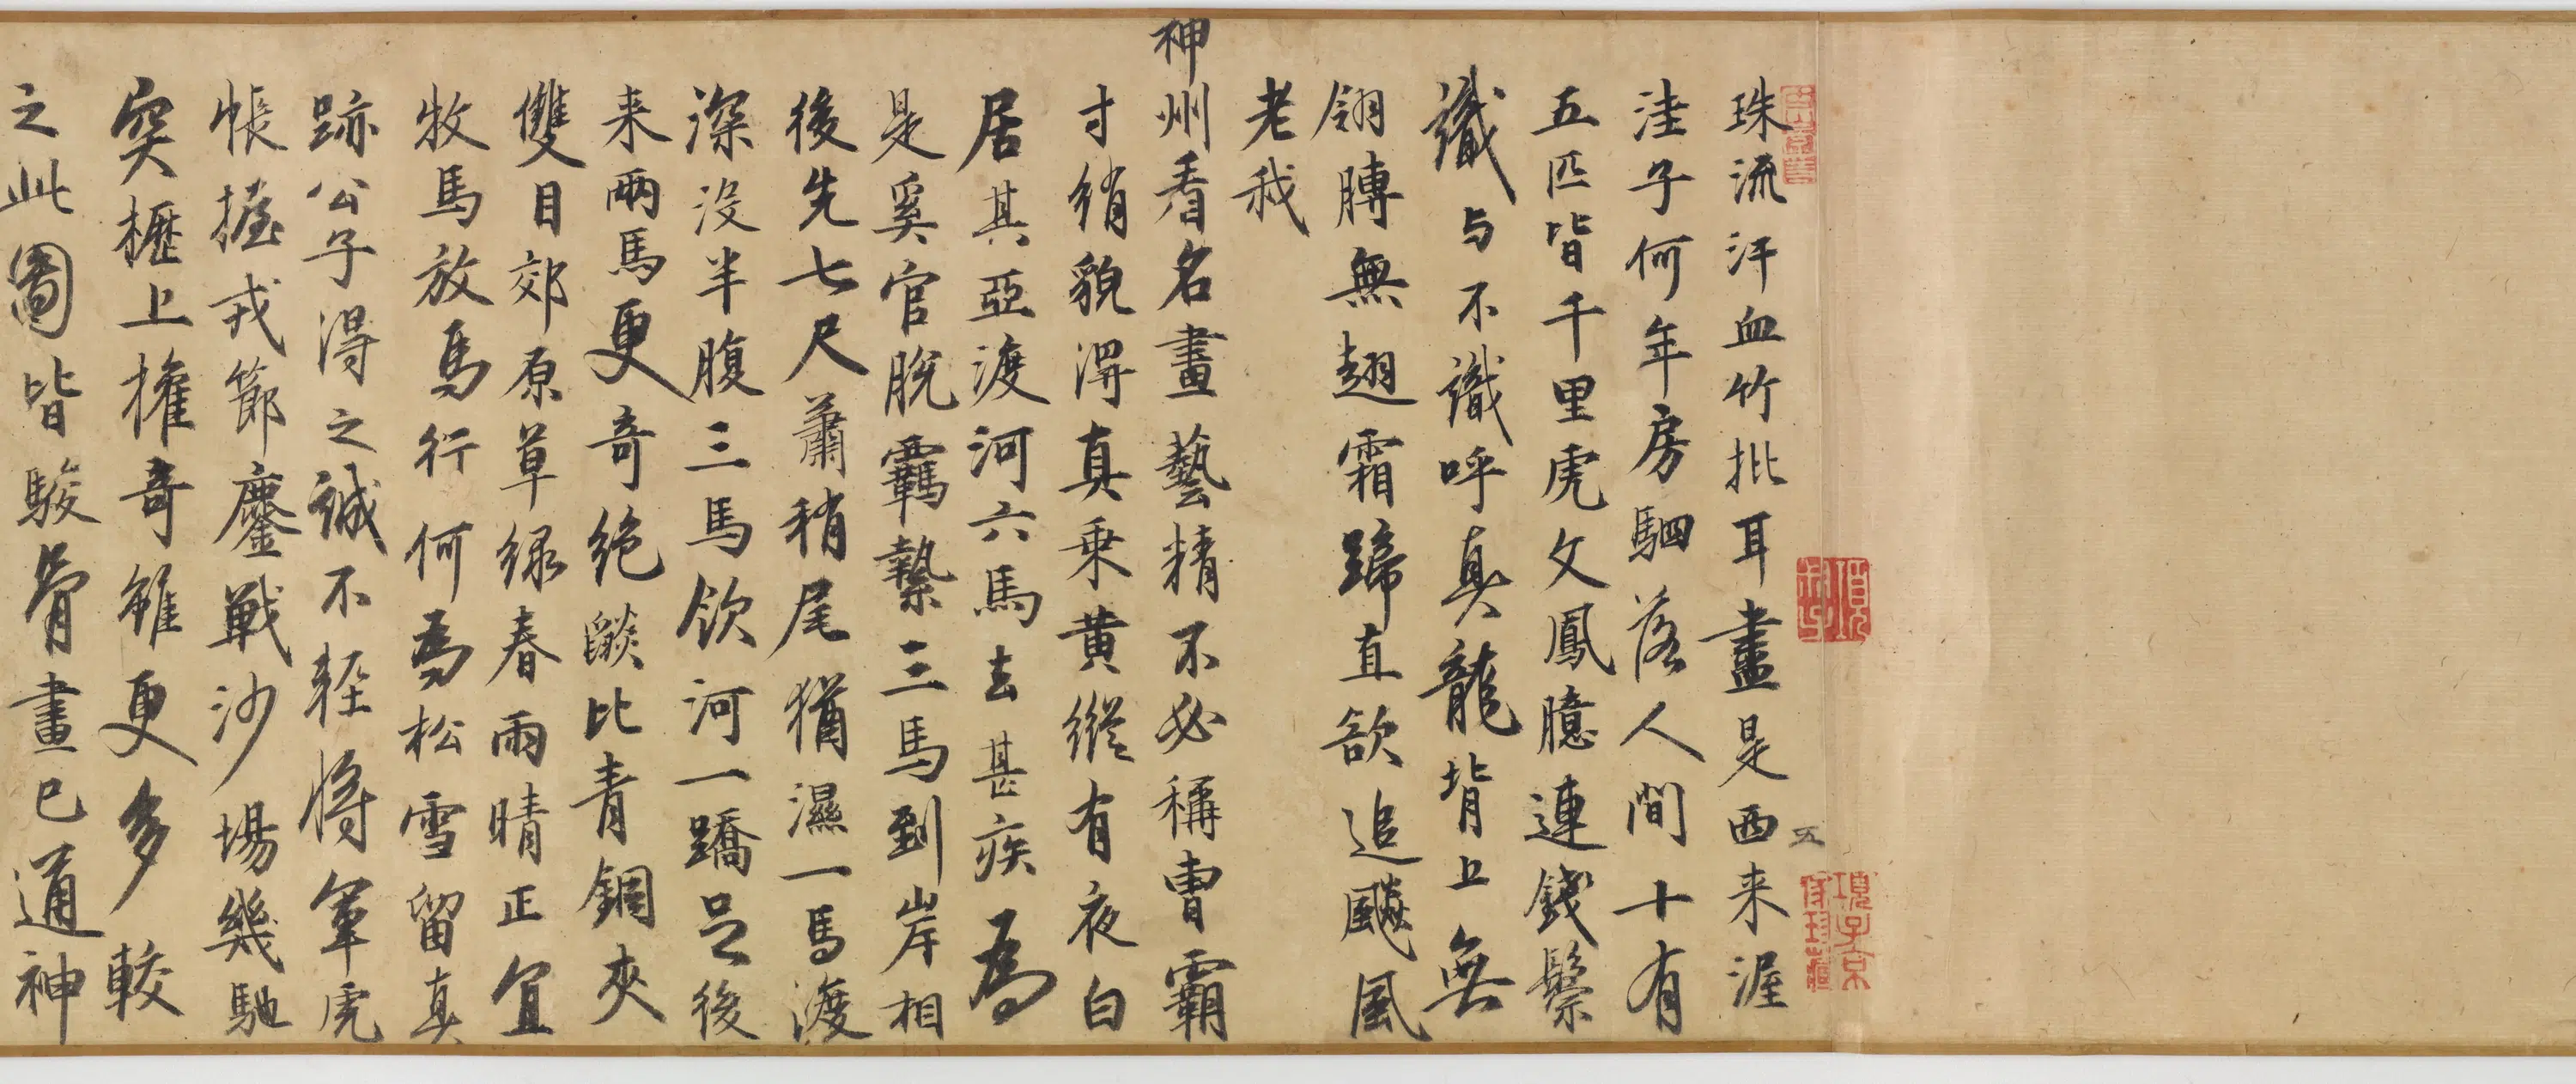 珠流汗血竹批耳畫是西来渥
洼子何年房駟落人間十有
五匹皆千里虎文鳳臆連錢鬃
識与不識呼真龍背上無
翎膊無翅霜蹄直欲追飈風
老我
神州看名畫藝精不必稱曹霸
寸綃貌得真乗黄縱有夜白
居其亞渡河六馬去甚疾為
是奚官脫羈縶三馬到岸相
後先七尺蕭稍尾猶濕一馬渡
深没半腹三馬飲河一蹻足後
来兩馬更奇絶歘比青銅夾
雙目郊原草緑春雨晴正宜
牧馬放馬行何為松雪留真
跡公子得之誠不輕將軍虎
帳握戎節鏖戰沙場幾馳
突櫪上權奇雖更多較
之此圖皆駿骨畫已通神
五